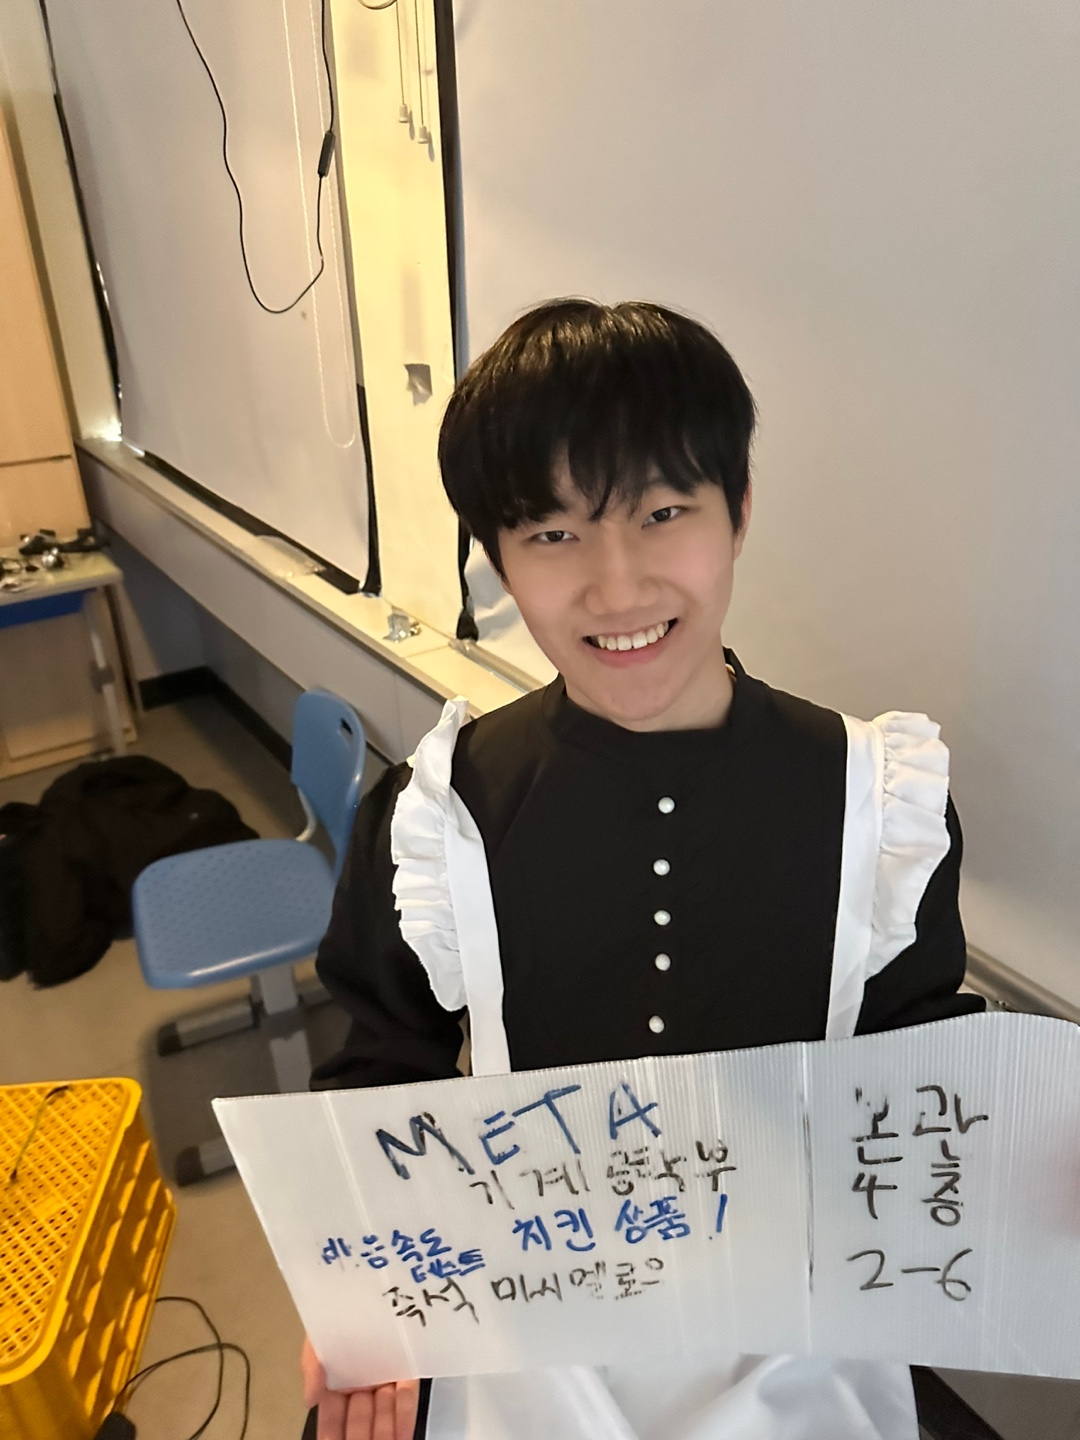 META
기계공학부
반응속도 테스트
치킨 상품!
즉석 미시멜로우
본관
4층
2-6